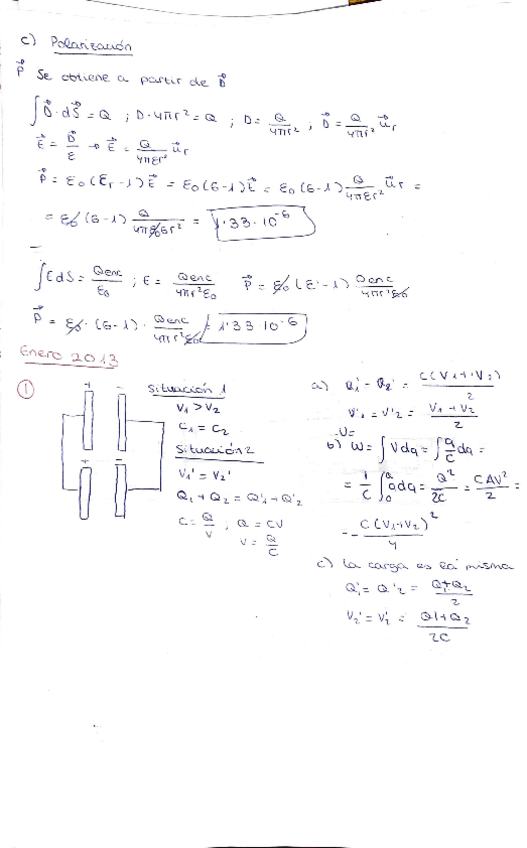 c) Polarización
P⃗ Se obtiene a partir de D⃗
∫ D⃗ · dS⃗ = Q ; D · 4πr² = Q ; D = Q/4πr² ; D⃗ = Q/4πr² u⃗r
E⃗ = D⃗/ε → E⃗ = Q/4πεr² u⃗r
P⃗ = ε0 (εr - 1) E⃗ = ε0 (6-1) E⃗ = ε0 (6-1) Q/4πεr² u⃗r =
= ε0 (6-1) Q/4πε06r² = 1'33 · 10⁻⁶
∫ E dS = Qenc/ε0 ; E = Qenc/4πr²ε0 P⃗ = ε0 (ε - 1) Qenc/4πr²ε0
P⃗ = ε0 · (6-1) · Qenc/4πr²ε0 = 1'33 10⁻⁶
Enero 2013
①
+ -
+ -
Situación 1
V1 > V2
C1 = C2
Situación 2
V1' = V2'
Q1 + Q2 = Q'1 + Q'2
C = Q/V ; Q = CV
V = Q/C
a) Q1' - Q2' = C(V1 + V2)/2
V'1 = V'2 = V1 + V2/2
b) W = ∫ V dq = ∫ q/C dq =
= 1/C ∫0^Q q dq = Q²/2C = CΔV²/2 =
C(V1+V2)²/4
c) la carga es la misma
Q1' = Q'2 = Q1+Q2/2
V2' = V1' = Q1+Q2/2C